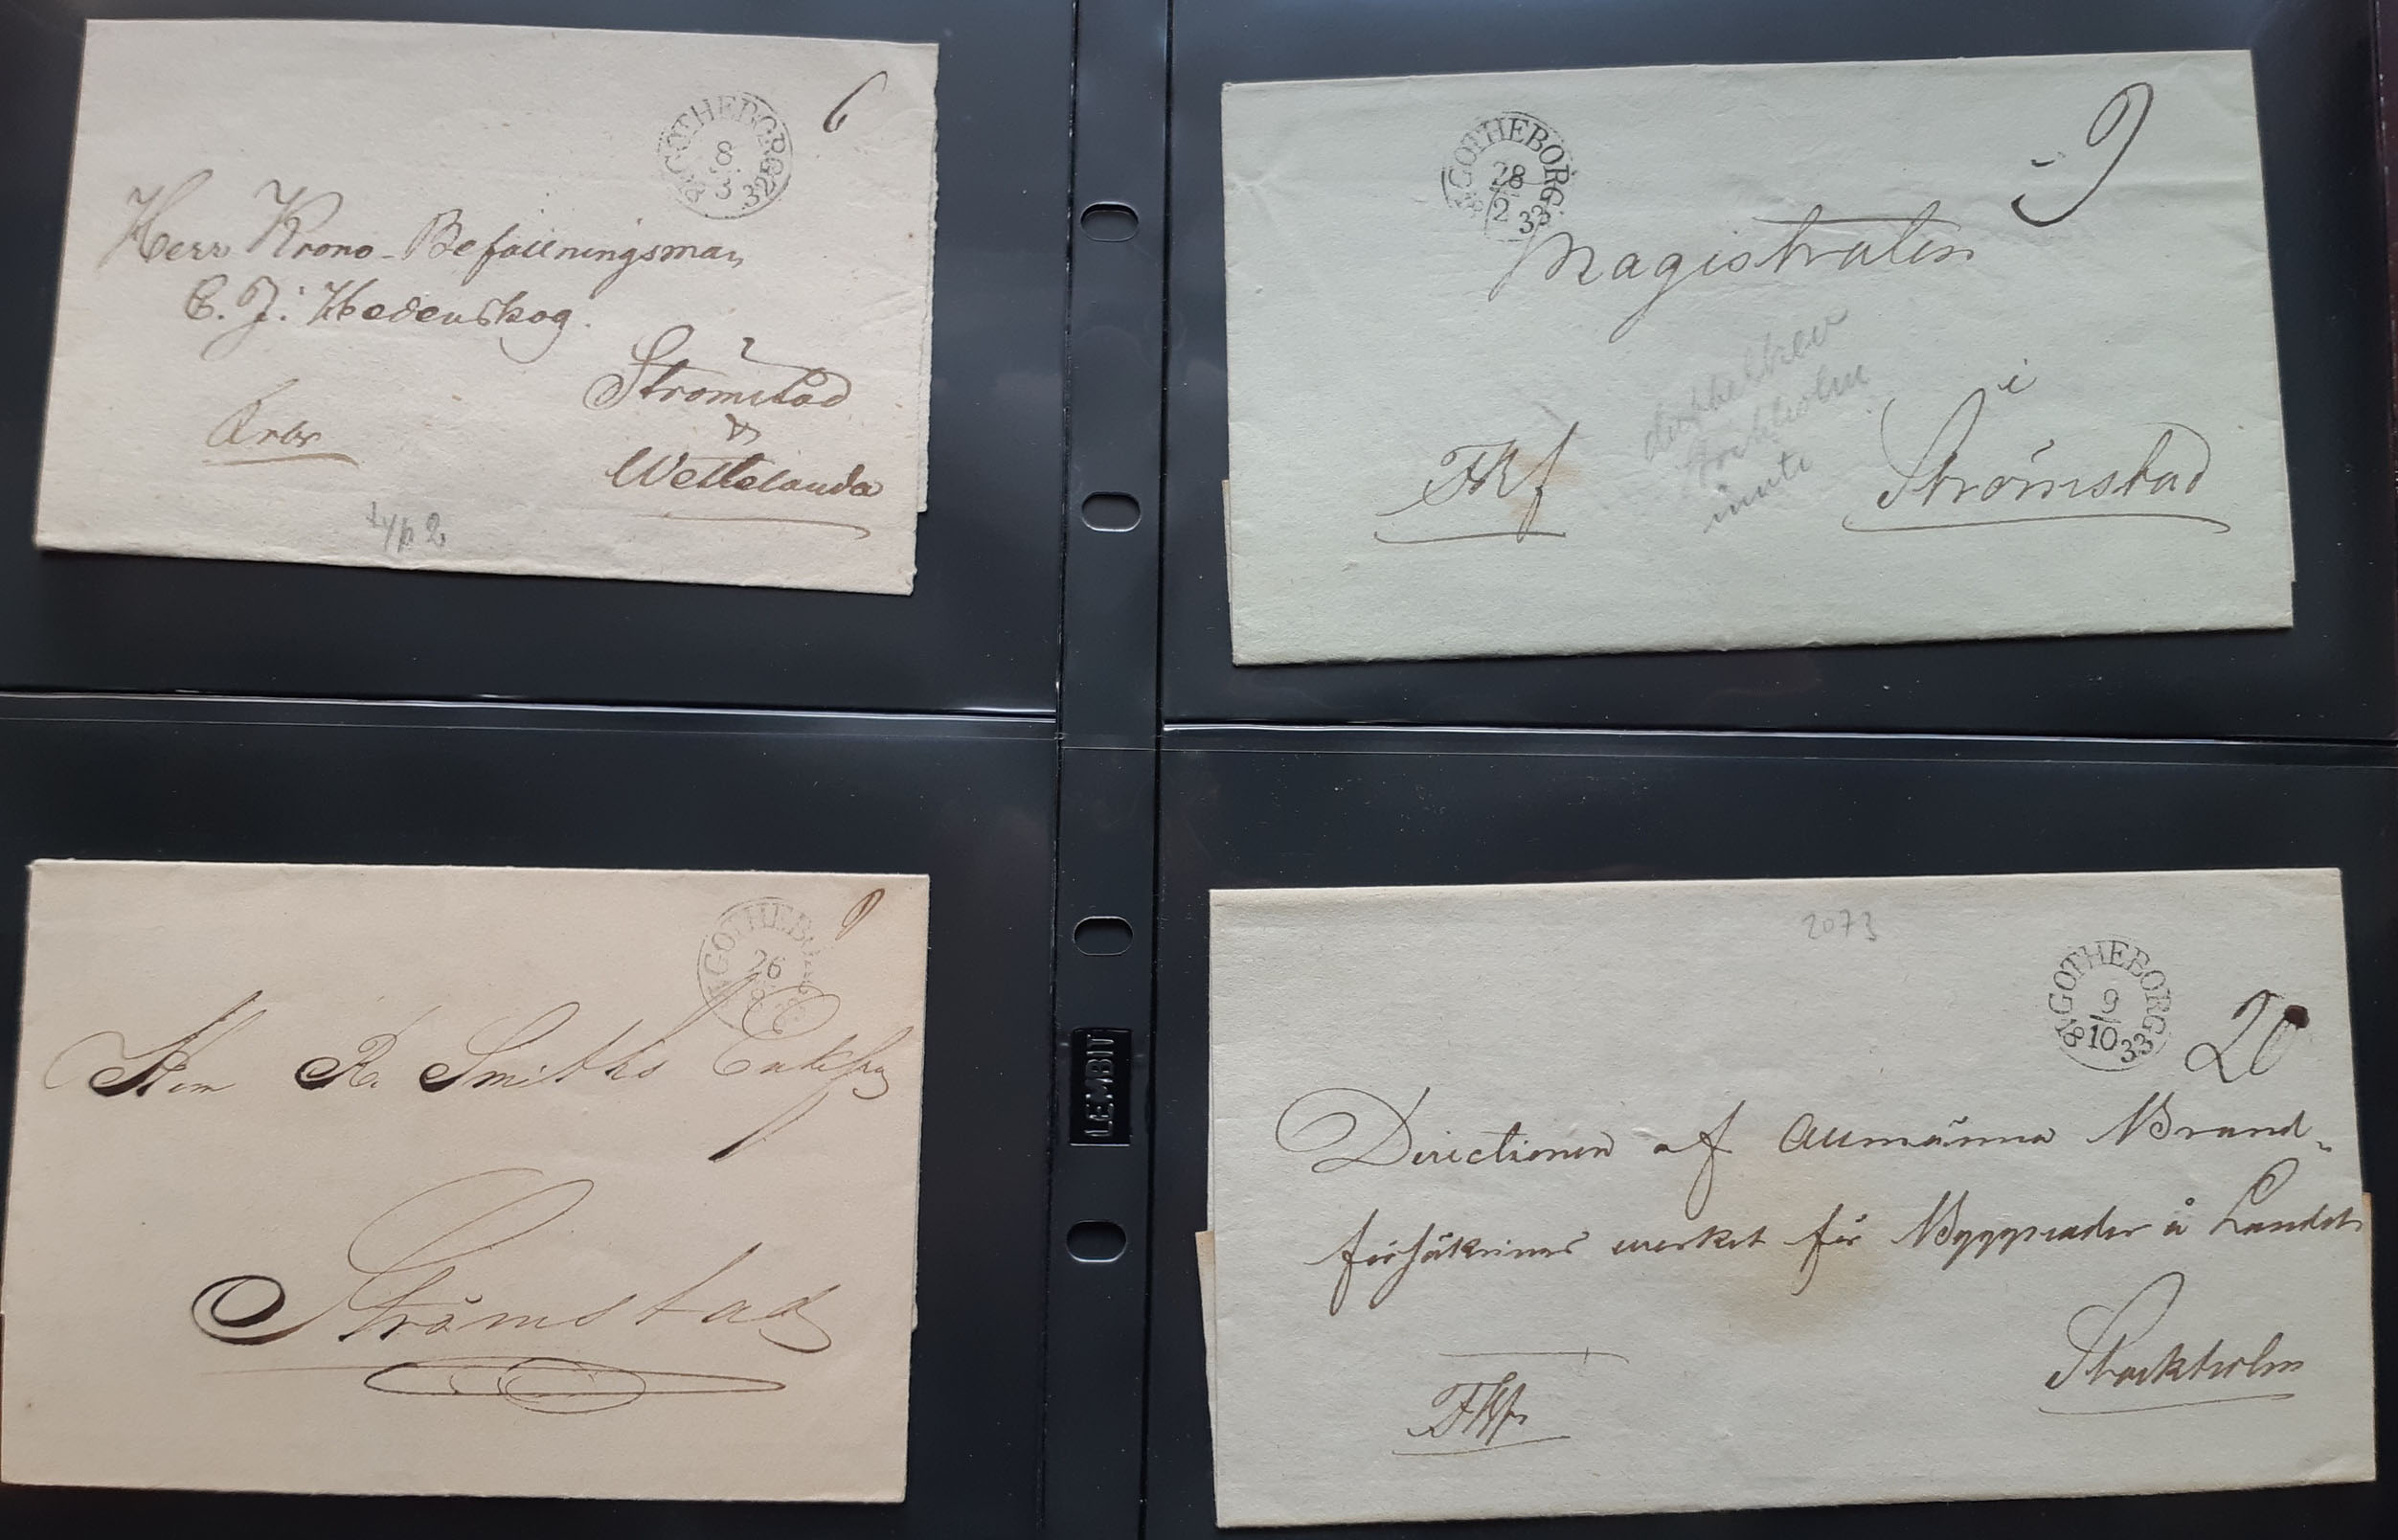 GOTHEBORG
8
3
18 32
6
Herr Krono-Befallningsman
C. J. Hedenskog.
Strömstad
Wettelanda
typ 2
GOTHEBORG.
28
2
18 33
9
Magistraten
i
Strömstad
dubbelbrev
Stockholm
inuti
GOTHEB
26
8
R. Smiths Enkefru
Strömstad
2073
GOTHEBORG
9
10
18 33
20
Directionen af Allmänna Brand-
försäkrings werket för Byggnader å Landet
Stockholm
LEMBIT